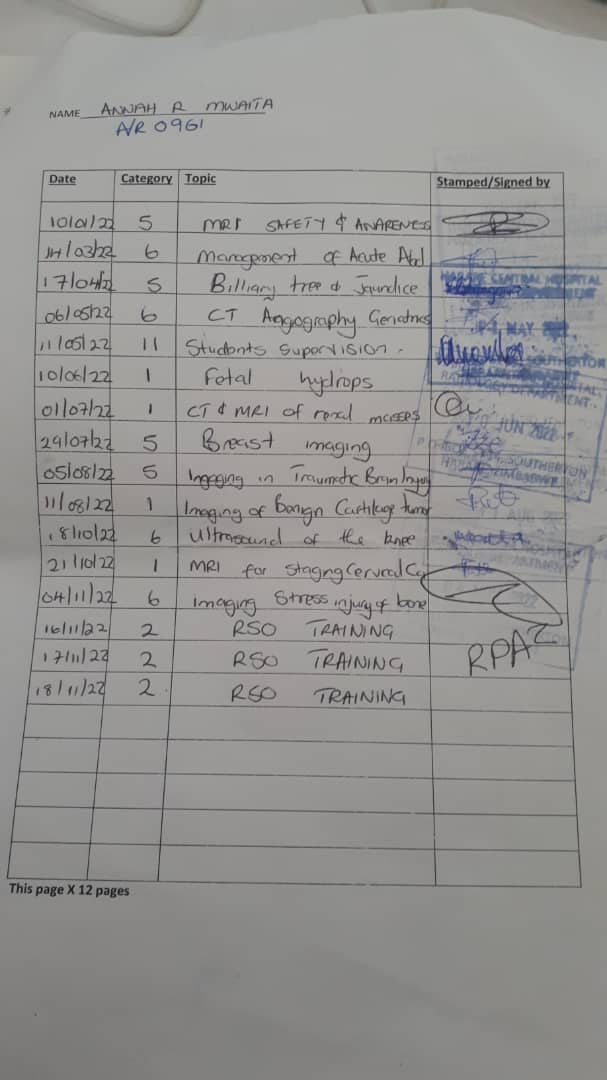 NAME ANNAH R MWAITA
A/R 0961
Date Category Topic Stamped/Signed by
10/01/22 5 MRI SAFETY & AWARENESS
14/03/22 6 Management of Acute Abd
17/04/22 5 Billiary tree & Jaundice
06/05/22 6 CT Angography
11/05/22 11 Students Supervision.
10/06/22 1 Fetal hydrops
01/07/22 1 CT & MRI of renal masses
29/07/22 5 Breast imaging
05/08/22 5 Imaging in Traumatic Brain Injury
11/08/22 1 Imaging of Benign Cartilage tumor
18/10/22 6 Ultrasound of the knee
21/10/22 1 MRI for staging Cervical Ca
04/11/22 6 imaging Stress injury of bone
16/11/22 2 RSO TRAINING
17/11/22 2 RSO TRAINING RPAZ
18/11/22 2 RSO TRAINING
This page X 12 pages